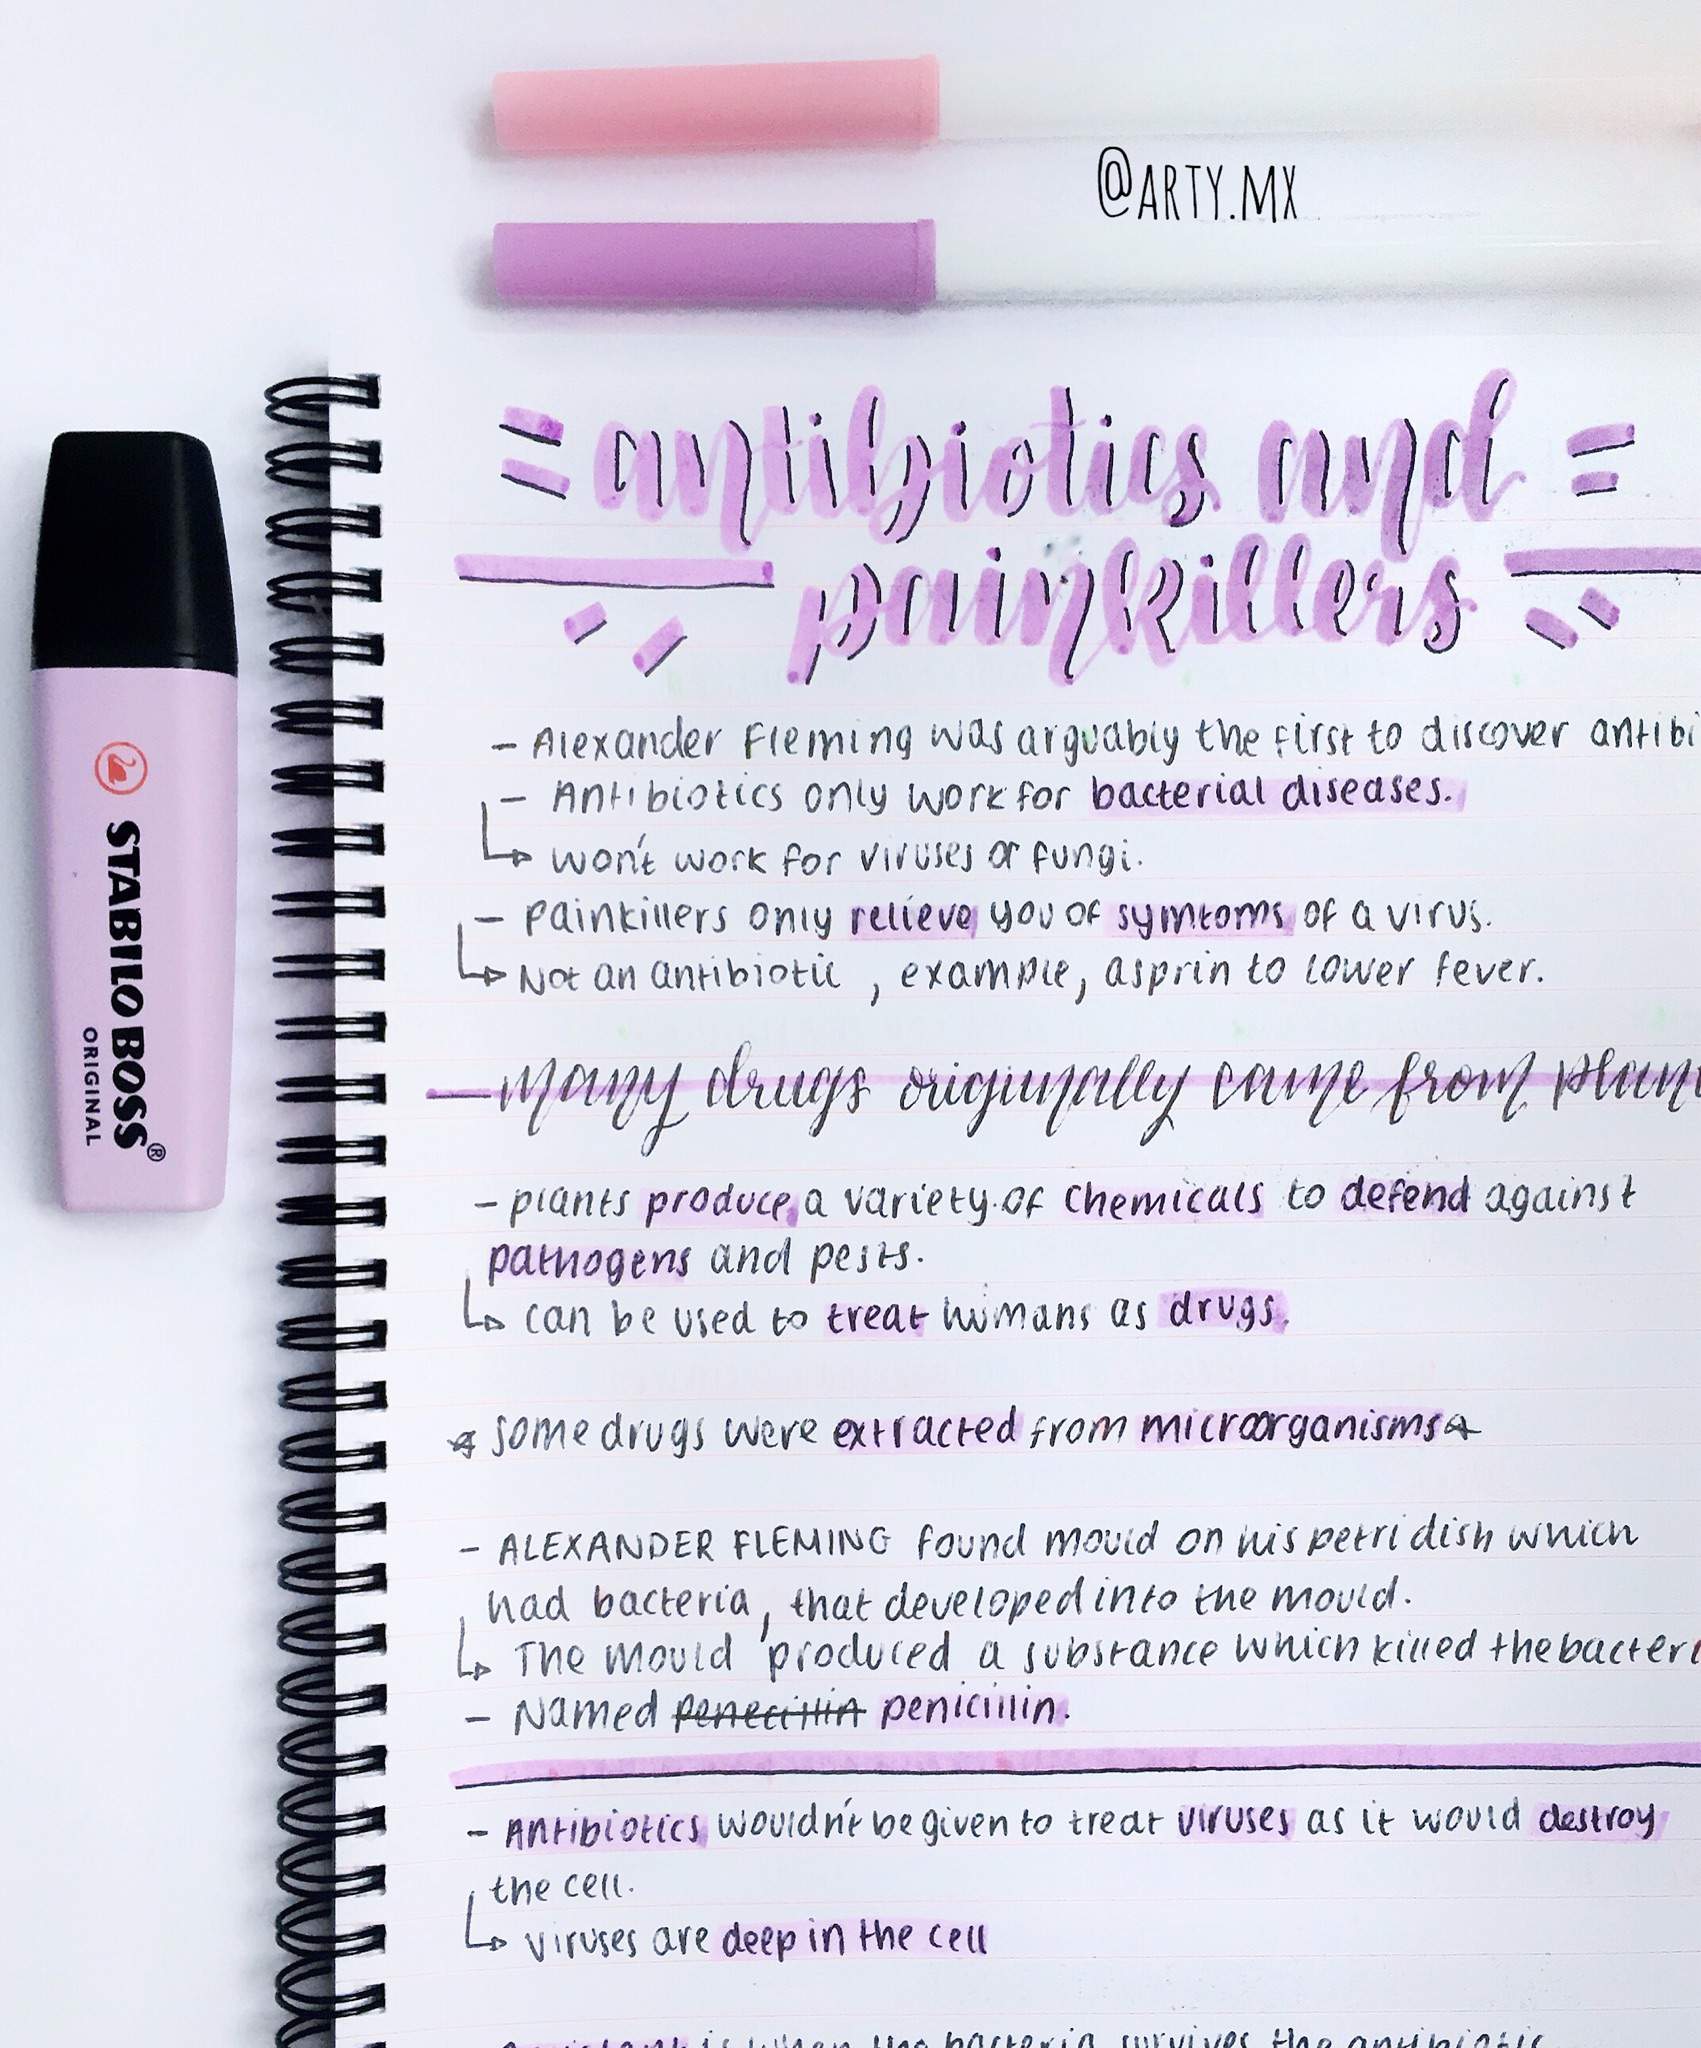 @ARTY.MX
= antibiotics and =
painkillers
STABILO BOSS®
ORIGINAL
- Alexander Fleming was arguably the first to discover antibi
- Antibiotics only work for bacterial diseases.
↳ won't work for viruses or fungi.
- painkillers only relieve you of symtoms of a virus.
↳ Not an antibiotic, example, asprin to lower fever.
many drugs originally came from plan
- plants produce a variety of chemicals to defend against
pathogens and pests.
↳ can be used to treat humans as drugs.
☆ some drugs were extracted from microorganisms ☆
- ALEXANDER FLEMING found mould on his petri dish which
had bacteria, that developed into the mould.
↳ The mould produced a substance which killed the bacteri
- Named penecillin penicillin.
- Antibiotics wouldn't be given to treat viruses as it would destroy
the cell.
↳ viruses are deep in the cell
is when the bacteria survives the antibiotic